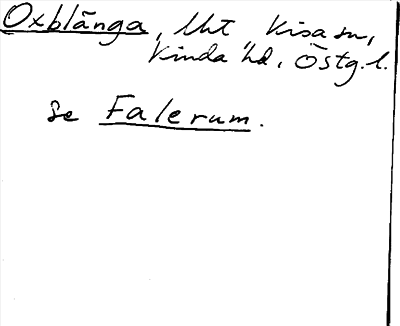 Oxblånga, Uht Kisa sn,
Kinda hd, Östg. l.
se Falerum.